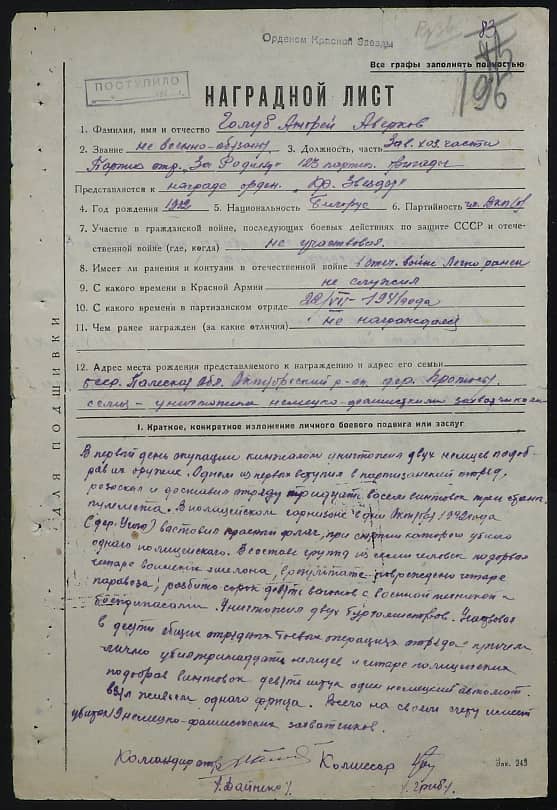 Орденом Красной Звезды
83
196
Все графы заполнять полностью
ПОСТУПИЛО
НАГРАДНОЙ ЛИСТ
1. Фамилия, имя и отчество Голуб Андрей Аверков
2. Звание не военно-обязан 3. Должность, часть Зав. хоз. части
Партиз. отр. "За Родину" 123 партиз. бригады
Представляется к награде орден. "Кр. Звезда"
4. Год рождения 5. Национальность Белорус 6. Партийность чл. ВКП(б)
7. Участие в гражданской войне, последующих боевых действиях по защите СССР и отече-
ственной войне (где, когда) не участвовал
8. Имеет ли ранения и контузии в отечественной войне в отеч. войне легко ранен
9. С какого времени в Красной Армии не служил
10. С какого времени в партизанском отряде 1941 года
11. Чем ранее награжден (за какие отличия) не награждался
12. Адрес места рождения представляемого к награждению и адрес его семьи
БССР Полесская обл. Октябрьский р-он дер.
семья - уничтожена немецко-фашистскими захватчиками
ДЛЯ ПОДШИВКИ
I. Краткое, конкретное изложение личного боевого подвига или заслуг
В первый день окупации кинжалом уничтожил двух немцев подоб-
рав их оружие. Одним из первых вступил в партизанский отряд,
разыскал и доставил отряду тридцать восемь винтовок три
пулемета. В полицейском гарнизоне в дни Октября 1942 года
(дер. ) выставил красный флаг, при снятии которого убило
одного полицейского. В составе групп из семи человек подорвал
четыре воинских эшелона, в результате повреждено четыре
паравоза, разбито сорок девять вагонов с военной техникой и
боеприпасами. Уничтожил двух бургомистров. Участвовал
в десяти общих отрядных боевых операциях отряда причем
лично убил тринадцать немцев и четыре полицейских
подобрав винтовок девять штук один немецкий автомат.
Взял живьем одного фрица. Всего на своем счету имеет
убитых 19 немецко-фашистских захватчиков.
Командир отр. Комиссар
Зак. 243